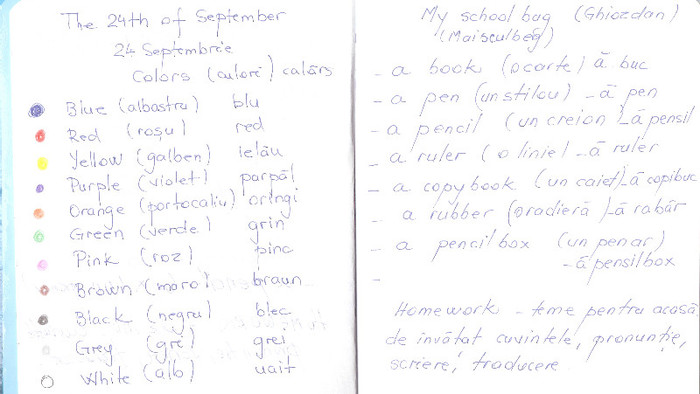 The 24th of September
24 Septembrie
Colors (culori) calărs
Blue (albastru) blu
Red (roșu) red
Yellow (galben) ielău
Purple (violet) parpăl
Orange (portocaliu) oringi
Green (verde) grin
Pink (roz) pinc
Brown (maro) braun
Black (negru) blec
Grey (gri) grei
White (alb) uait
My school bag (Ghiozdan)
(Maisculbeg)
- a book (o carte) ă buc
- a pen (un stilou) - ă pen
- a pencil (un creion) - ă pensil
- a ruler (o linie) - ă rulër
- a copybook (un caiet) - ă copibuc
- a rubber (o radieră) - ă rabăr
- a pencilbox (un penar)
- ă pensilbox
-
Homework - teme pentru acasă,
de învățat cuvintele, pronunție,
scriere, traducere